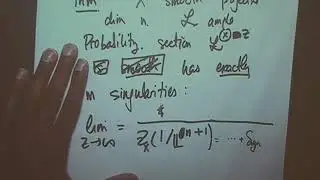 Thm X smooth projective
dim n 𝓛 ample
Probability. section 𝓛^⊗z
has exactly
m singularities :
lim = 
z→∞ Z_x(1/𝕃^{n+1}) = ... +